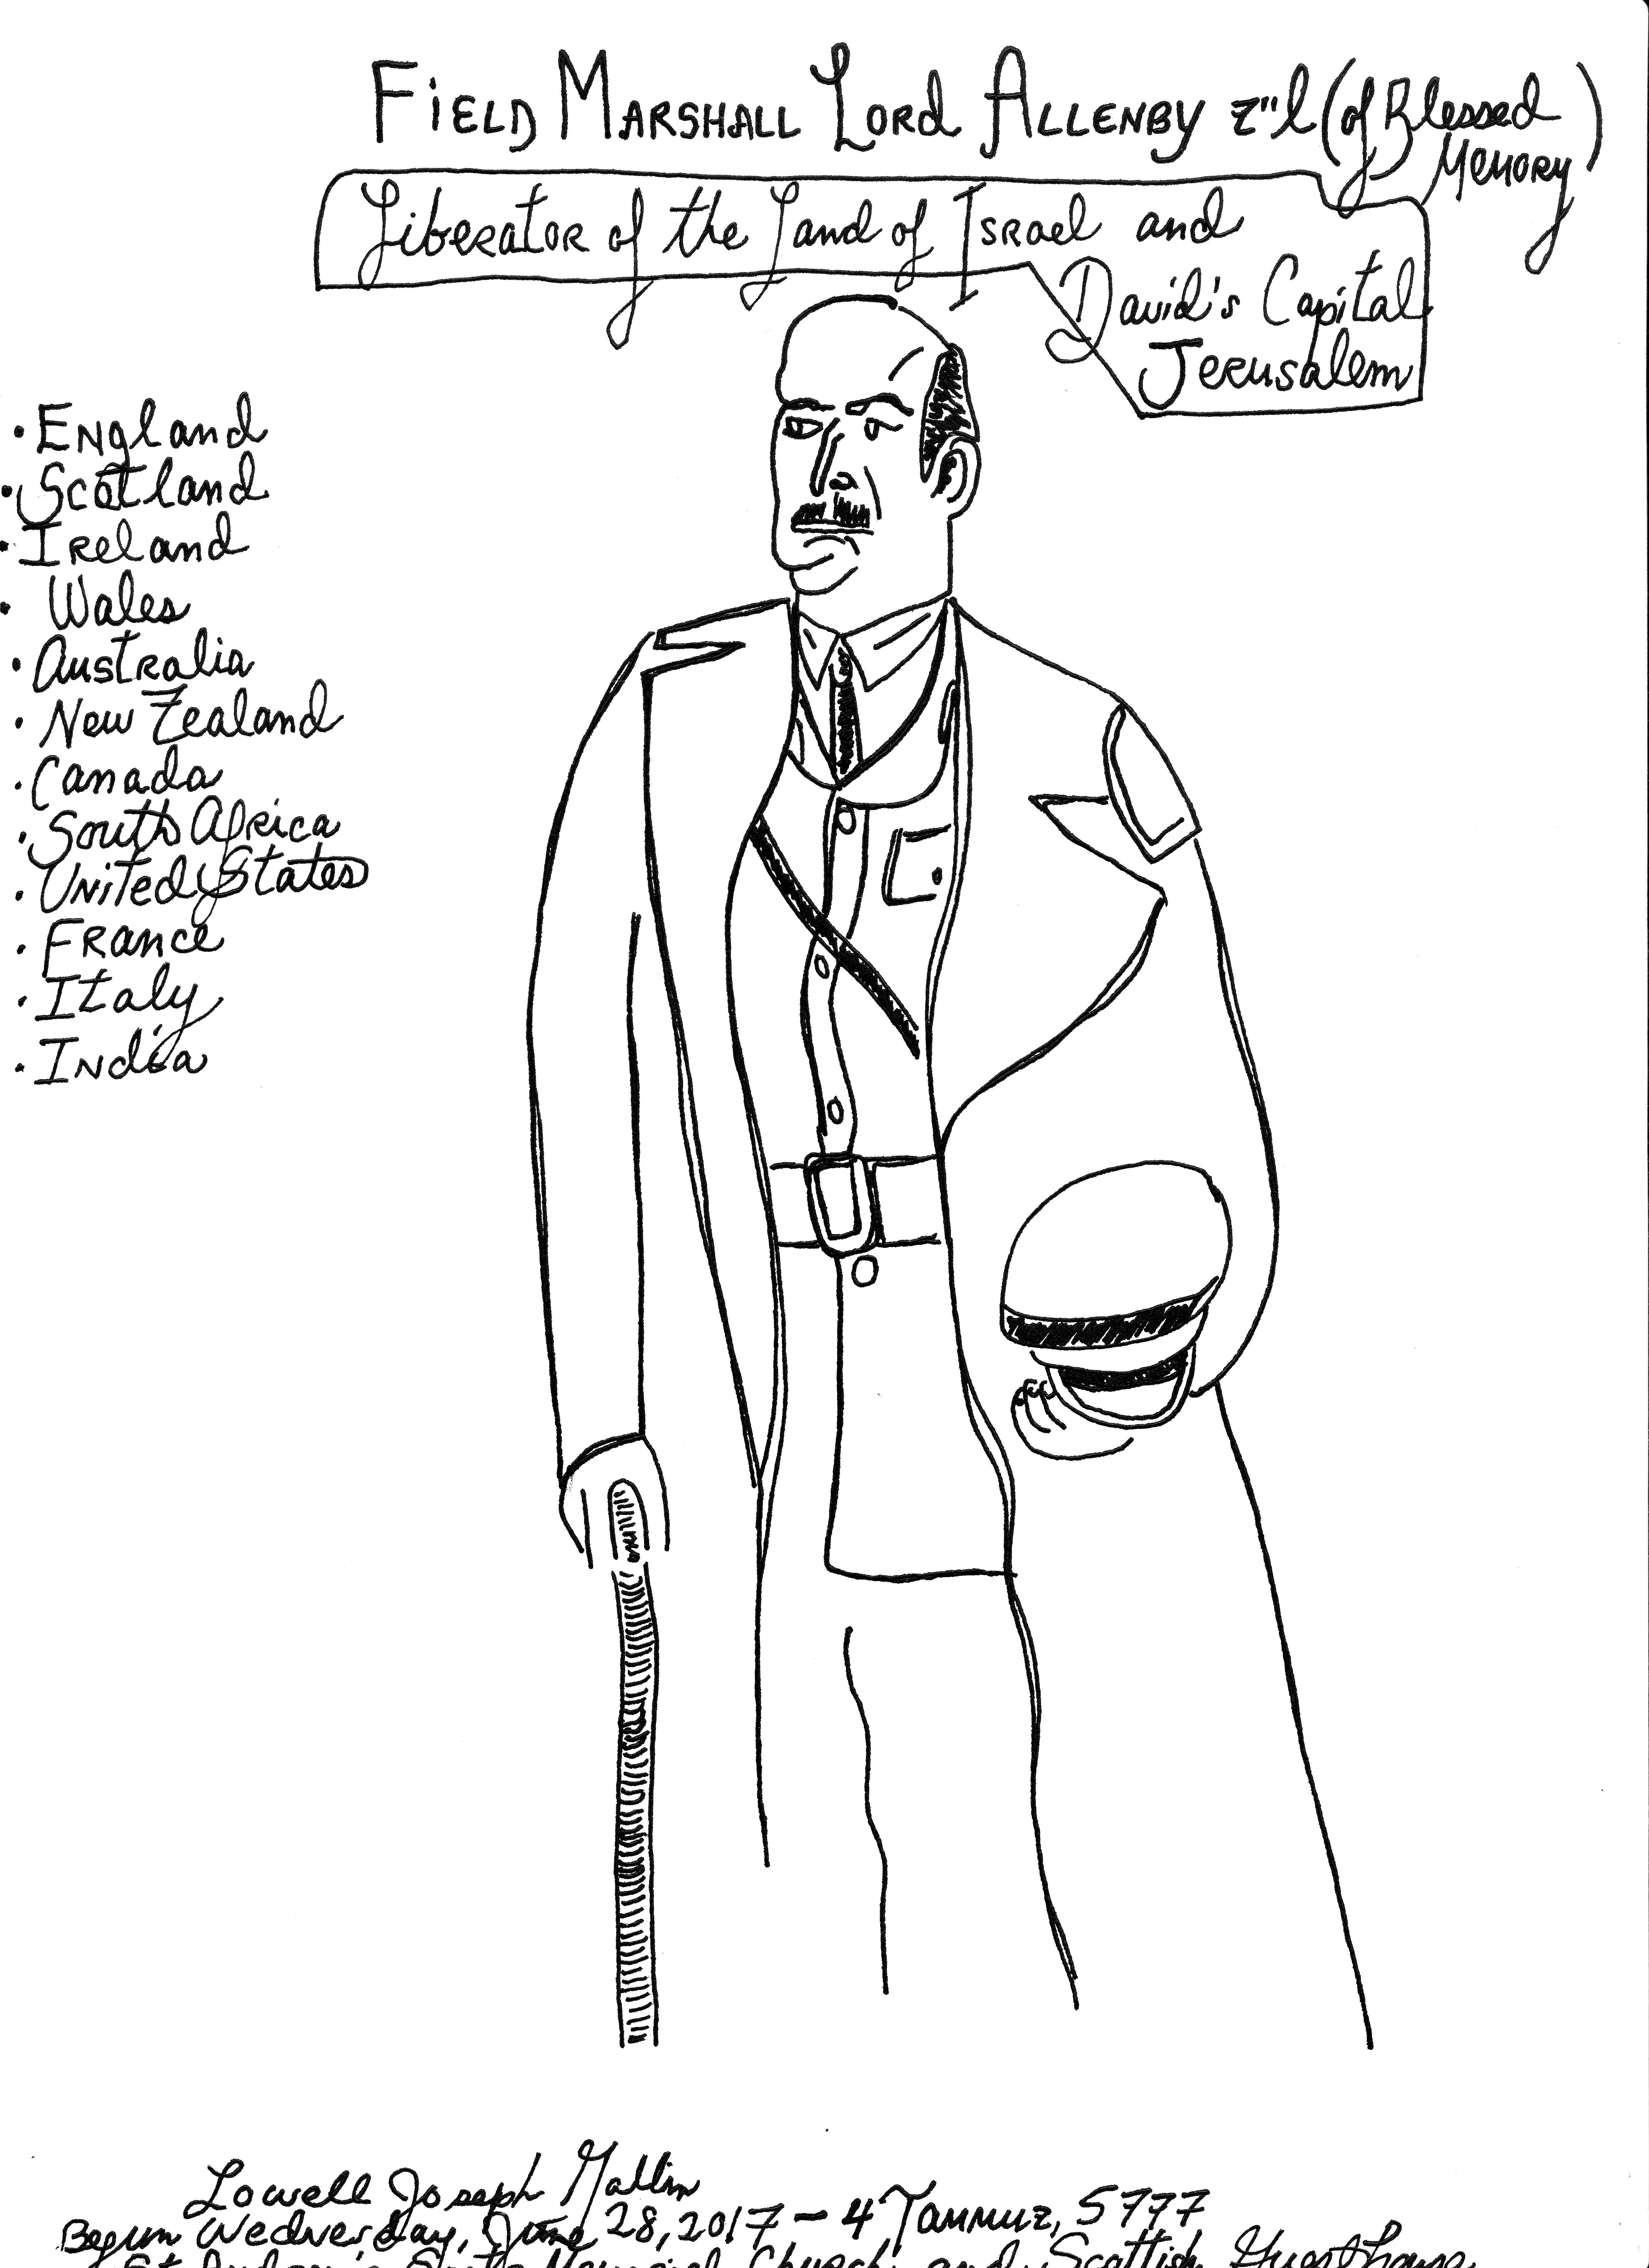 FIELD MARSHALL LORD ALLENBY z"l (of Blessed
Memory)
Liberator of the Land of Israel and
David's Capital
Jerusalem
• England
• Scotland
• Ireland
• Wales
• Australia
• New Zealand
• Canada
• South Africa
• United States
• France
• Italy
• India
Lowell Joseph Gallin
Begun Wednesday, June 28, 2017 – 4 Tammuz, 5777
St. Andrew's Scots Memorial Church and Scottish Guesthouse